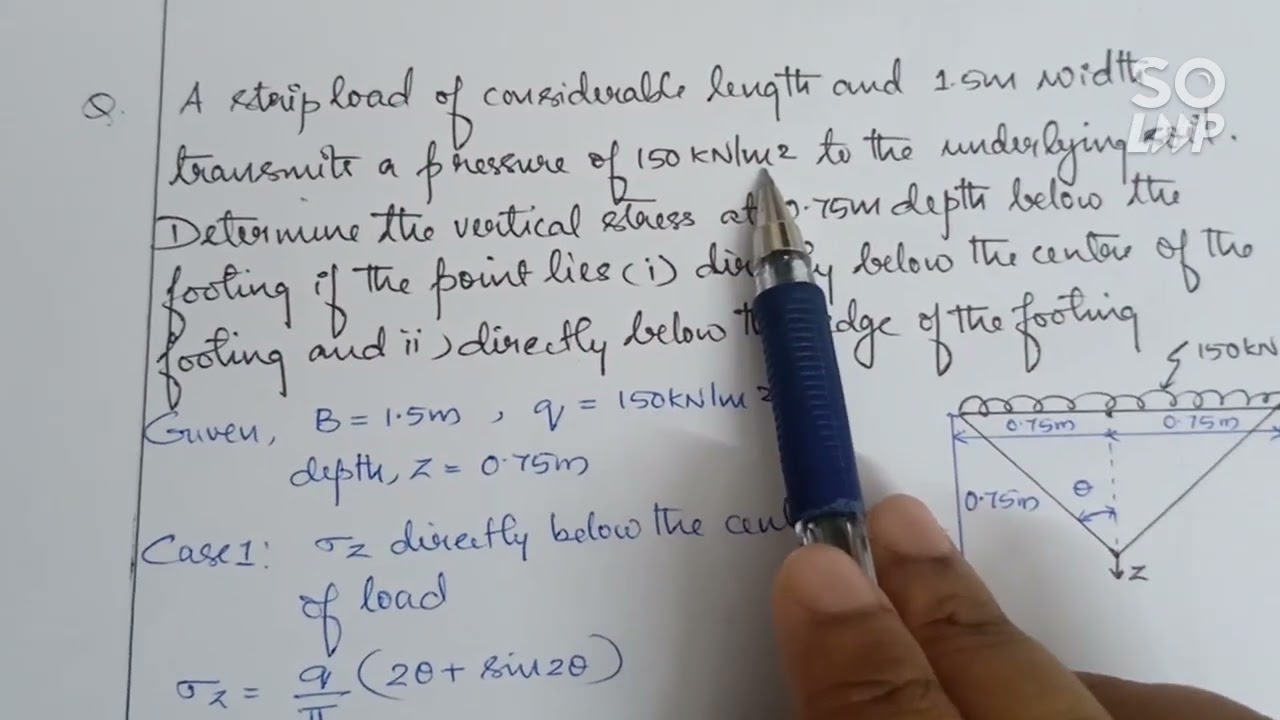 SO
LMP
Q. A strip load of considerable length and 1.5m width
transmits a pressure of 150 KN/m2 to the underlying soil.
Determine the vertical stress at 0.75m depth below the
footing if the point lies (i) below the centre of the
footing and ii) directly below edge of the footing
150KN
Given, B = 1.5m , q = 150KN/m2
0.75m 0.75m
depth, Z = 0.75m
0.75m θ
Case1: σz directly below the
Z
of load
σz = q/π (2θ + sin2θ)